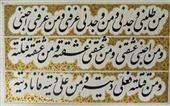 من طلبنی وجدنی و من وجدنی عرفنی و من عرفنی احبنی
و من احبنی عشقنی و من عشقنی عشقته و من عشقته قتلته
و من قتلته فعلی دیته و من علی دیته فانا دیته